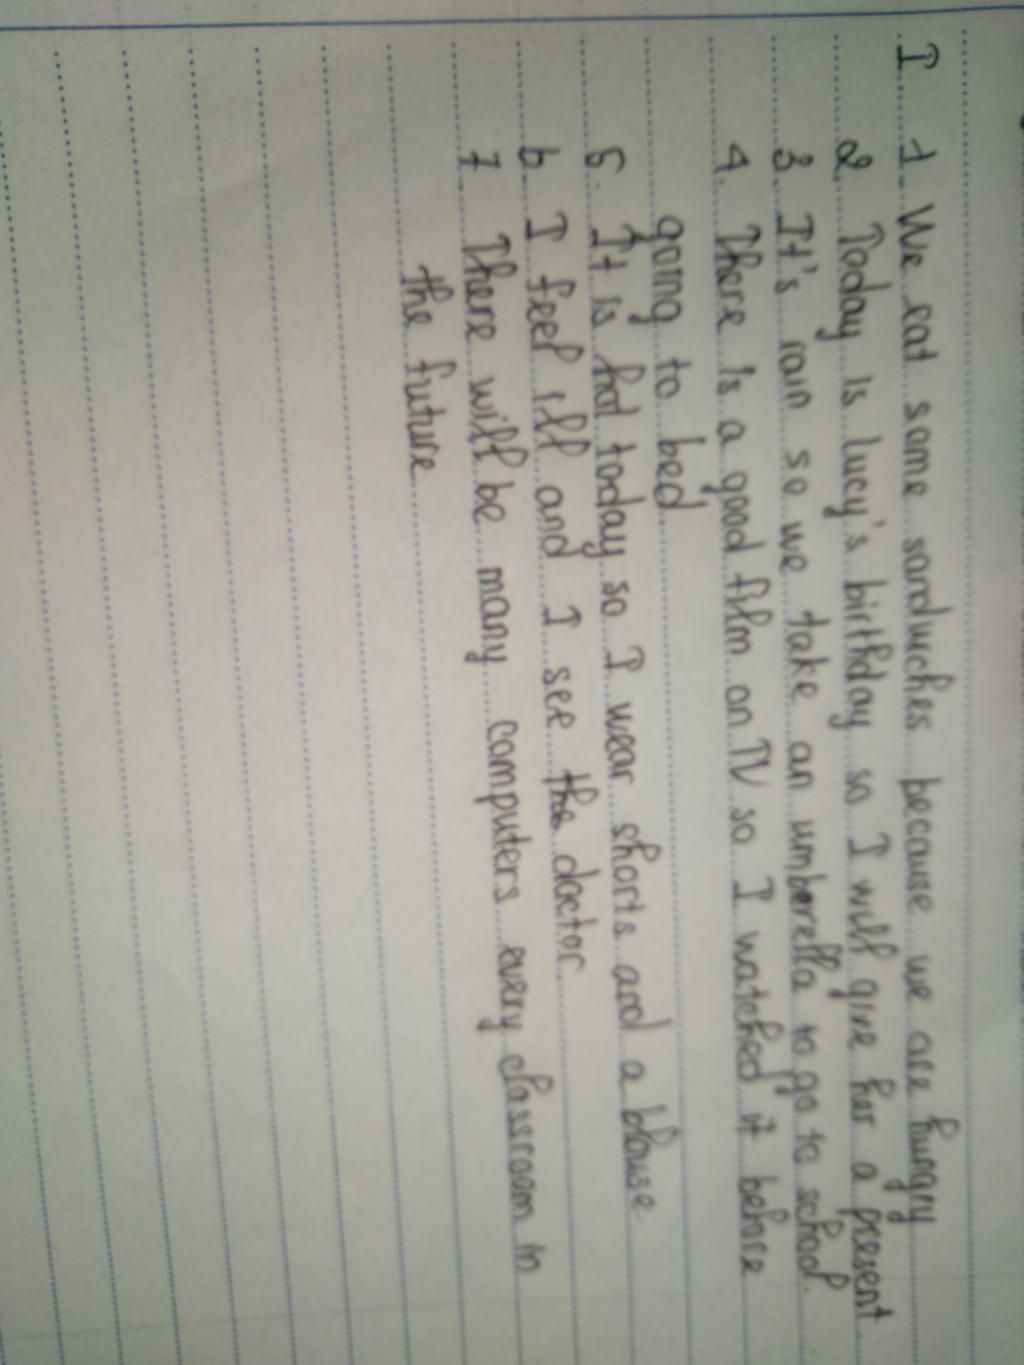 I 1 We eat some sandwiches because we are hungry
2 Today is lucy's birthday so I will give her a present
3 It's rain so we take an umberella to go to school.
4. There is a good film on TV so I watched it before
going to bed
5. It is hot today so I wear shorts and a blouse
6 I feel ill and I see the doctor
7 There will be many computers every classroom in
the future